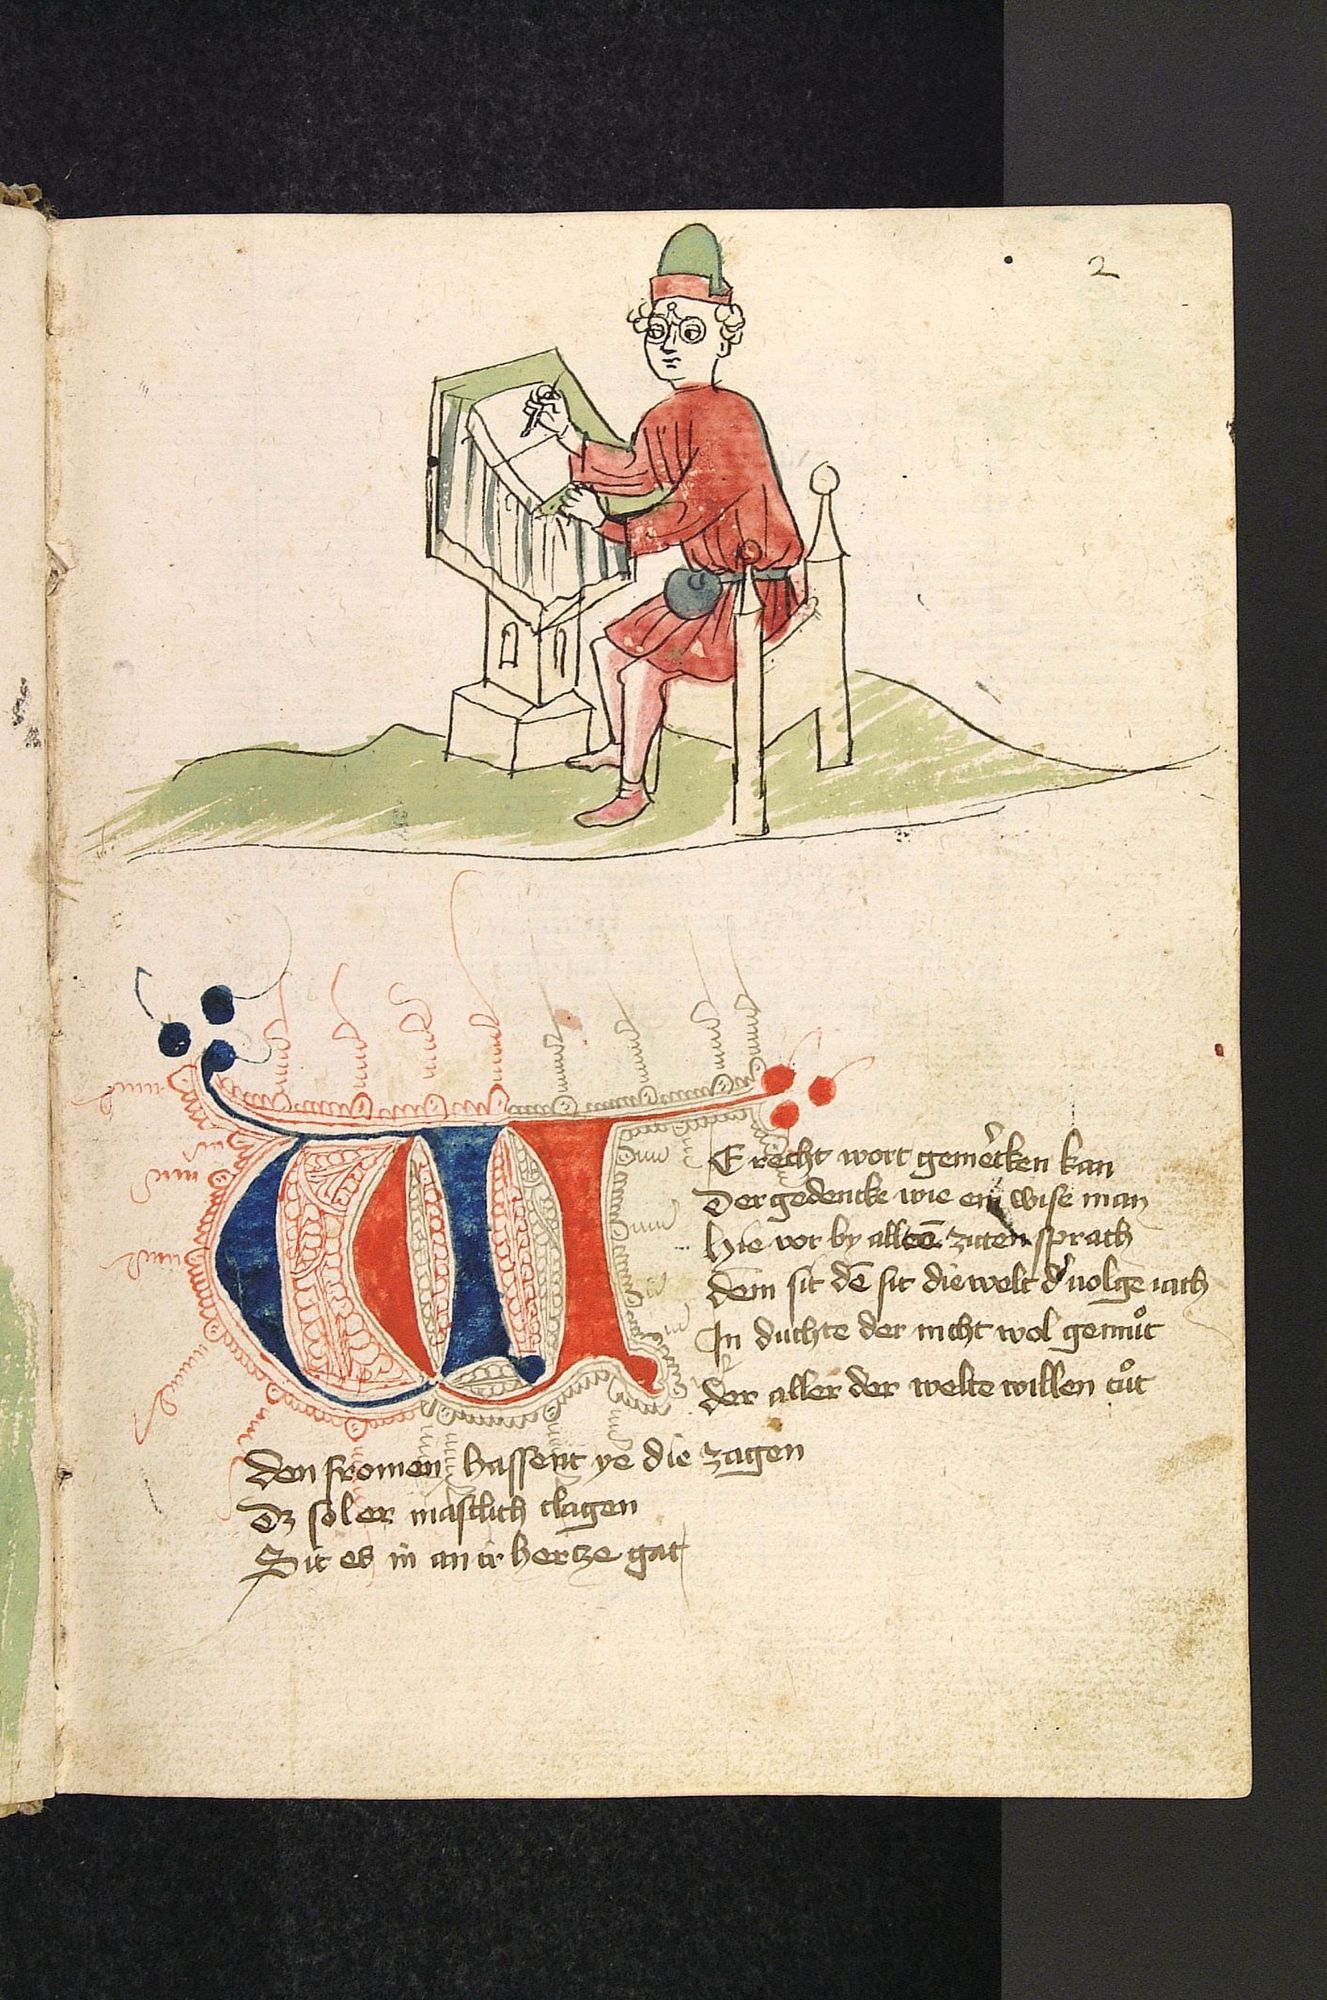 2
W
E recht wort gemercken kan
Der gedencke wie ein wise man
Hie vor by allen ziten sprach
Dem sit dē sit die welt d' volge nach
In duchte der nicht wol gemůt
der aller der welte willen tůt
Den fromen hassent ye die zagen
Dz sol er mastlich clagen
Sit es in an ir hertze gat